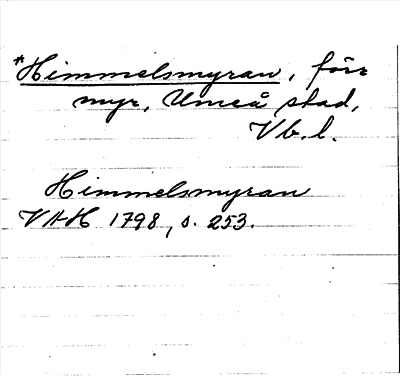 *Himmelsmyran, för=
myr, Umeå stad,
Vb. l.
Himmelsmyran
VAH 1798, s. 253.